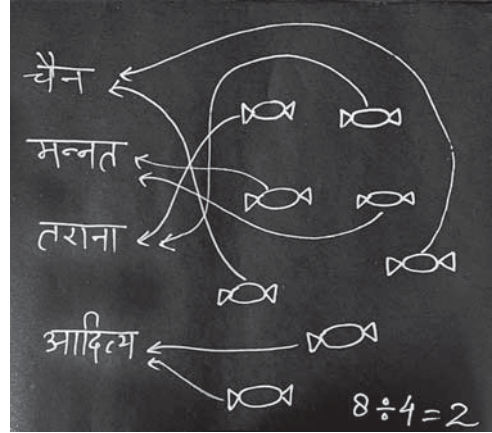 चैन
मन्नत
तराना
आदित्य
8÷4=2